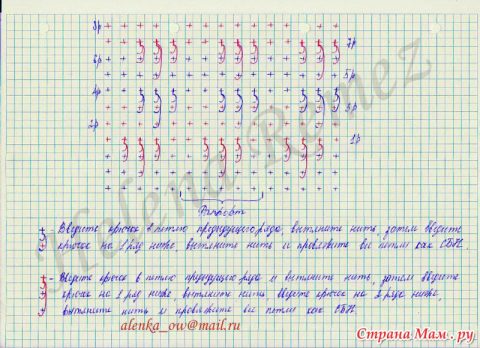 8р
7р
6р
5р
4р
3р
2р
1р
Раппорт
Введите крючок в петлю предыдущего ряда вытяните нить, затем введите
крючок на 1 ряд ниже, вытяните нить и провяжите все петли как СБН.
- Введите крючок в петлю предыдущего ряда и вытяните нить, затем введите
крючок на 1 ряд ниже, вытяните нить введите крючок на 2 ряда ниже,
вытяните нить и провяжите все петли как СБН.
alenka_ow@mail.ru
Halena Remez
Страна Мам.ру